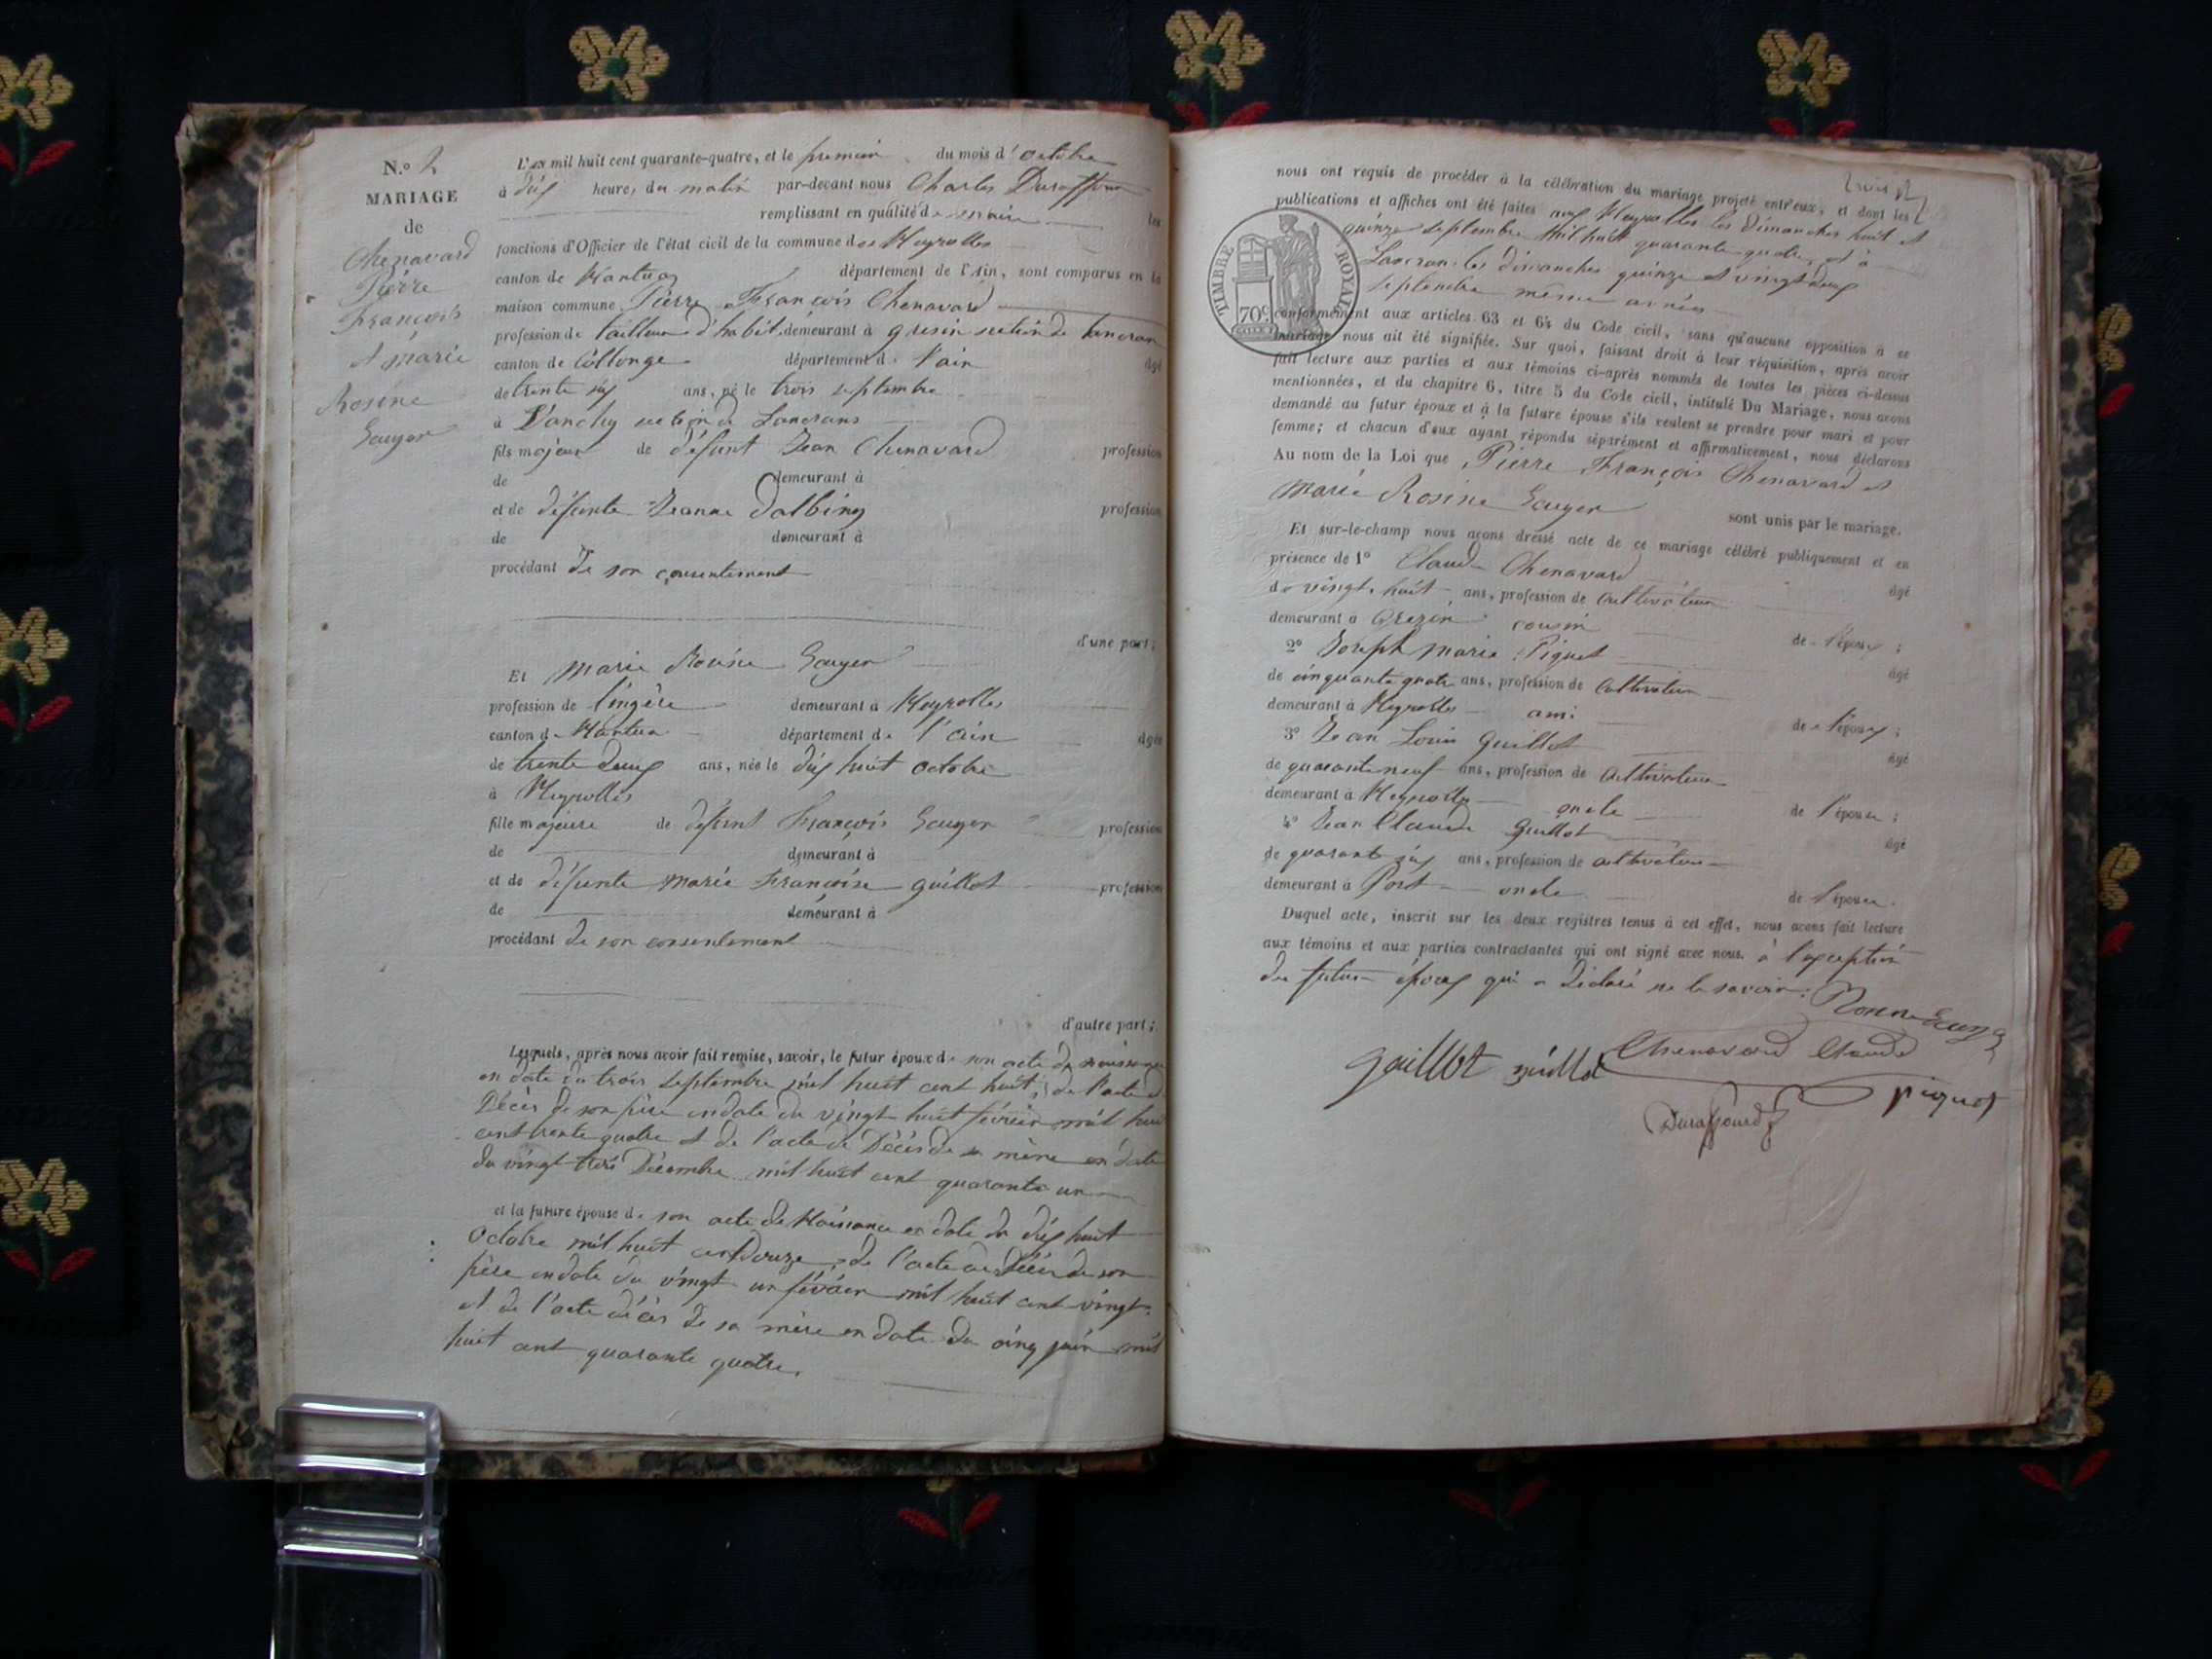 N.º 2
MARIAGE
de
Chenavard
Pierre
François
et marie
Rosine
Gauger
L'an mil huit cent quarante-quatre, et le premier du mois d'octobre
à dix heures du matin par-devant nous Charles Duraffour
remplissant en qualité de maire les
fonctions d'Officier de l'état civil de la commune des Neyrolles
canton de Nantua département de l'Ain, sont comparus en la
maison commune Pierre François Chenavard
profession de tailleur d'habit, demeurant à gresin section de Lancran
canton de Collonge département de l'ain âgé
de trente six ans, né le trois septembre
à Vanchy section de Lancrans
fils majeur de défunt Jean Chenavard profession
de demeurant à
et de défunte Jeanne Dalbing profession
de demeurant à
procédant de son consentement
d'une part;
Et Marie Rosine Gauger
profession de lingère demeurant à Neyrolles
canton de Nantua département de l'ain âgée
de trente deux ans, née le dix huit octobre
à Neyrolles
fille majeure de défunt François Gauger profession
de demeurant à
et de défunte marie Françoise guillot profession
de demeurant à
procédant de son consentement
d'autre part;
Lesquels, après nous avoir fait remise, savoir, le futur époux de son acte de naissance
en date du trois septembre mil huit cent huit; de l'acte de
Décès de son père en date du vingt huit février mil huit
cent trente quatre et de l'acte de Décès de sa mère en date
du vingt trois Décembre mil huit cent quarante un
et la future épouse de son acte de Naissance en date du dix huit
Octobre mil huit cent douze, de l'acte de Décès de son
père en date du vingt un février mil huit cent vingt
et de l'acte décès de sa mère en date du cinq juin mil
huit cent quarante quatre.
nous ont requis de procéder à la célébration du mariage projeté entr'eux, et dont les
publications et affiches ont été faites aux Neyrolles les Dimanches huit et
quinze septembre mil huit quarante quatre, et à
Lancrans les dimanches quinze et vingt deux
septembre même année
TIMBRE ROYAL
70c
conformément aux articles 63 et 64 du Code civil, sans qu'aucune opposition à ce
mariage nous ait été signifiée. Sur quoi, faisant droit à leur réquisition, après avoir
fait lecture aux parties et aux témoins ci-après nommés de toutes les pièces ci-dessus
mentionnées, et du chapitre 6, titre 5 du Code civil, intitulé Du Mariage, nous avons
demandé au futur époux et à la future épouse s'ils veulent se prendre pour mari et pour
femme; et chacun d'eux ayant répondu séparément et affirmativement, nous déclarons
Au nom de la Loi que Pierre François Chenavard et
Marie Rosine Gauger sont unis par le mariage.
Et sur-le-champ nous avons dressé acte de ce mariage célébré publiquement et en
présence de 1º Claude Chenavard âgé
de vingt huit ans, profession de cultivateur
demeurant à Grezin cousin de l'époux;
2º Joseph Marie Piquet âgé
de cinquante quatre ans, profession de Cultivateur
demeurant à Neyrolles ami de l'époux;
3º Jean Louis Guillot âgé
de quarante neuf ans, profession de cultivateur
demeurant à Neyrolles oncle de l'épouse;
4º Jean Claude Guillot âgé
de quarante six ans, profession de cultivateur
demeurant à Port oncle de l'épouse.
Duquel acte, inscrit sur les deux registres tenus à cet effet, nous avons fait lecture
aux témoins et aux parties contractantes qui ont signé avec nous. à l'exception
du futur époux qui a déclaré ne le savoir.
guillot guillot Chenavard Claude
piquet
Duraffourd